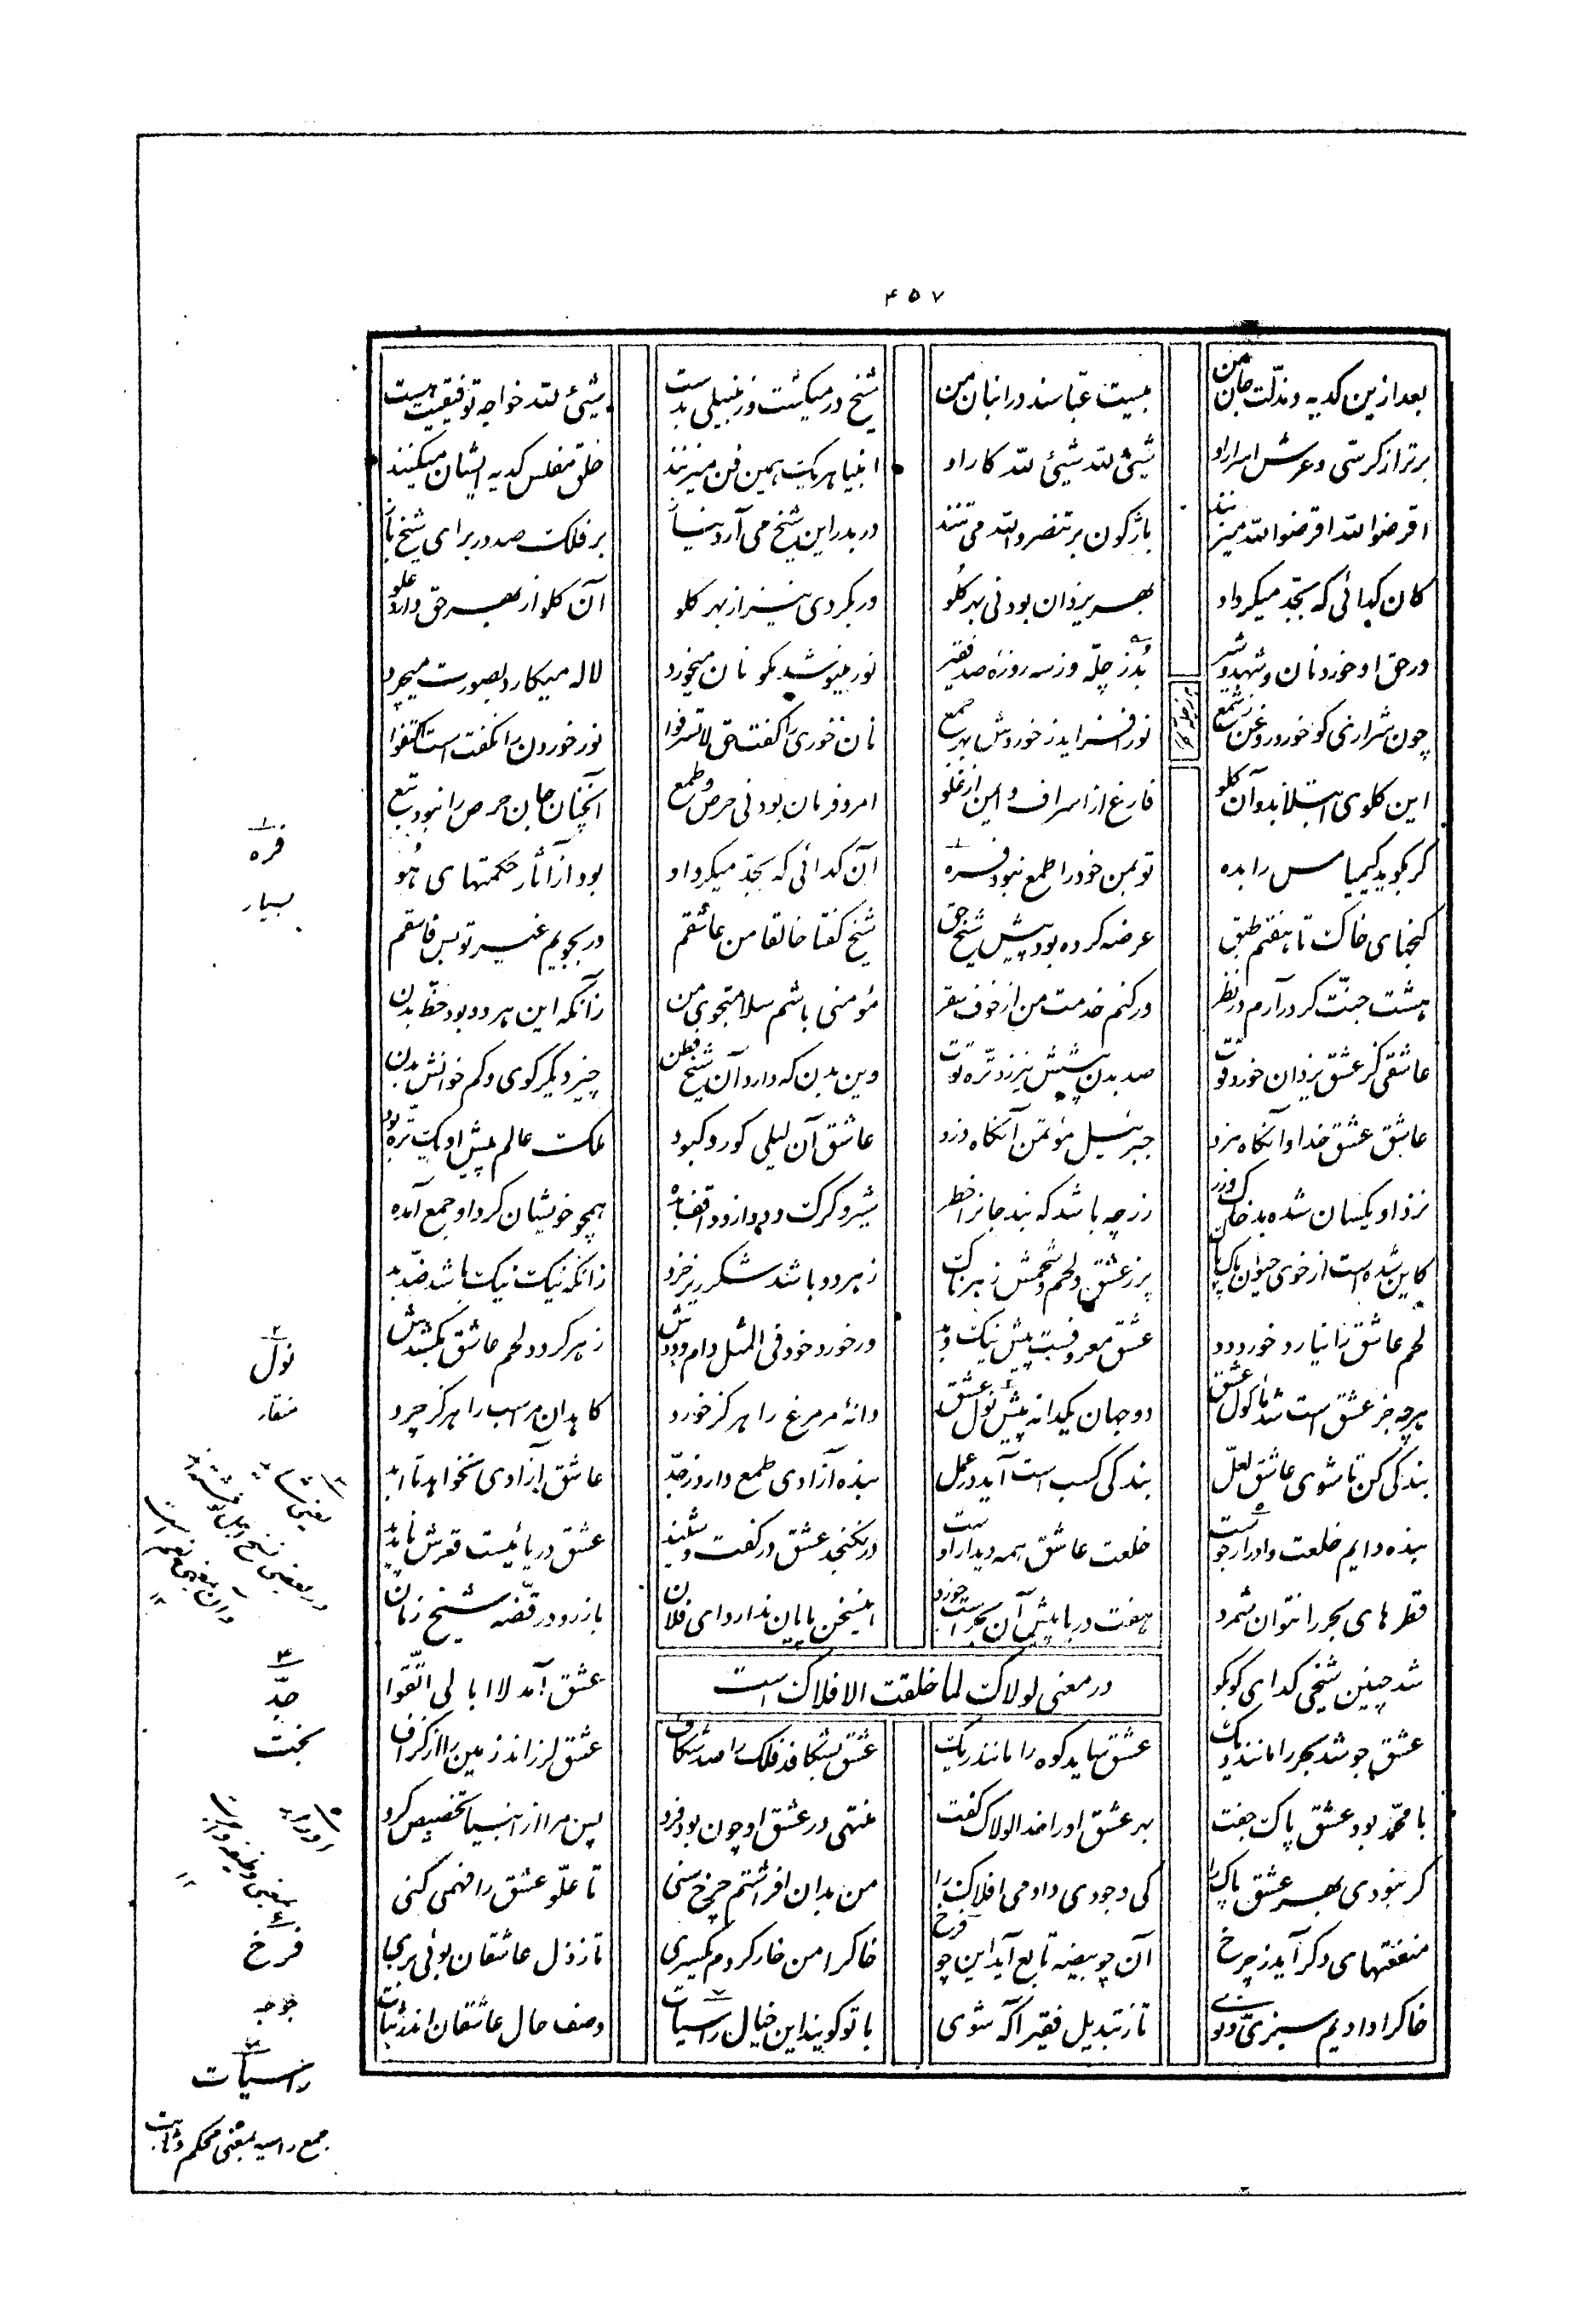 ۴۵۷
بعد ازین کدیه و مذلت جان من بیست عباسند در انبان من شیخ در میکشت و زنبیلی بدست شیئ لله خواجه توفیقیت هست
برتر از کرسی و عرش اسرار او شیئ لله شیئ لله کار او انبیا هریک همین فن میزنند خلق مفلس کدیه ایشان میکنند
اقرضوا لله اقرضوا لله میزنند باژکون بر تنصروا لله می تنند در بدر این شیخ می آرد نیاز بر فلک صد در برای شیخ باز
کان کدائی که بجد میکرد او بهر یزدان بود نی بهر کلو ور بکردی نیز از بهر کلو آن کلو از بهر حق دارد علو
در حق او خورد نان و شهد و شیر به ز چله وز سه روزه صد فقیر نور مینوشد مکو نان میخورد لاله میکارد بصورت میچرد
چون شراری کو خورد روغن ز شمع نور افزاید ز خوردش بهر جمع نان خوری را کفت حق لا تسرفوا نور خوردن را نکفت است اکتفوا
این کلوی ابتلا بد وآن کلو فارغ از اسراف و امن از غلو امر و فرمان بود نی حرص و طمع آنچنان جان حرص را نبود تبع
کر بکوید کیمیا مس را بده تو بمن خود را طمع نبود فره آن کدائی که بجد میکرد او بود از آثار حکمتهای هو
کنجهای خاک تا هفتم طبق عرضه کرده بود پیش شیخ حق شیخ کفتا خالقا من عاشقم ور بجویم غیر تو بس فاسقم
هشت جنت کر در آرم در نظر ور کنم خدمت من از خوف سقر مؤمنی باشم سلامتجوی من زآنکه این هر دو بود حظ بدن
عاشقی کز عشق یزدان خورد قوت صد بدن پیشش نیرزد تره توت وین بدن که دارد آن شیخ فطن چیز دیکر کوی و کم خوانش بدن
عاشق عشق خدا وآنکاه مزد جبرئیل مؤتمن آنکاه دزد عاشق آن لیلی کور و کبود ملک عالم پیش او یک تره بود
نزد او یکسان شده بد خاک و زر زر چه باشد که نبد جانرا خطر شیر و کرک و دد ازو واقف شده همچو خویشان کرد او جمع آمده
کاین شده است از خوی حیوان پاک پاک پر ز عشق و لحم و شحمش زهرناک زهر دد باشد شکر ریز خرد زانکه نیک نیک باشد ضد بد
لحم عاشق را نیارد خورد دد عشق معروفست پیش نیک و بد ور خورد خود فی المثل دام و ددش زهر کردد لحم عاشق بکشدش
هرچه جز عشق است شد ماکول عشق دو جهان یکدانه پیش نول عشق دانهٔ مر مرغ را هرکز خورد کاهدان مر اسب را هرکز چرد
بندکی کن تا شوی عاشق لعل بندکی کسب است آید در عمل بنده آزادی طمع دارد ز جد عاشق آزادی نخواهد تا ابد
بنده دایم خلعت و ادرار جوست خلعت عاشق همه دیدار اوست در نکنجد عشق در کفت و شنید عشق دریائیست قعرش ناپدید
قطرهای بحر را نتوان شمرد هفت دریا پیش آن بحر است خورد اینسخن پایان ندارد ای فلان باز رو در قصه شیخ زمان
در معنی لولاک لما خلقت الافلاک است
شد چنین شیخی کدای کو بکو عشق آمد لا ابالی اتقوا
عشق جوشد بحر را مانند دیک عشق ساید کوه را مانند ریک عشق بشکافد فلک را صد شکاف عشق لرزاند زمین را از کزاف
با محمد بود عشق پاک جفت بهر عشق او را خدا لولاک کفت منتهی در عشق او چون بود فرد پس مر او را ز انبیا تخصیص کرد
کر نبودی بهر عشق پاک را کی وجودی دادمی افلاک را من بدان افراشتم چرخ سنی تا علو عشق را فهمی کنی
منفعتهای دکر آید ز چرخ آن چو بیضه تابع آید این چو فرخ خاکرا من خار کردم یکسری تا ز ذل عاشقان بوئی بری
خاکرا دادیم سبزی و نوی تا ز تبدیل فقیر آکه شوی با تو کویند این خیال راسیات وصف حال عاشقان اندر ثبات
۱
فره
بسیار
۲
نول
منقار
۴
جد
بخت
۵
ادرار
۶
فرخ
جوجه
۷
راسیات
جمع راسیه بمعنی محکم و ثابت